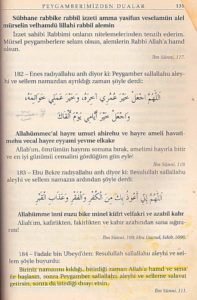 PEYGAMBERİMİZDEN DUALAR 135
Sübhane rabbike rabbil izzeti amma yasifun veselamün alel
mürselin velhamdü lillahi rabbil alemin
İzzet sahibi Rabbimi onların nitelemelerinden tenzih ederim.
Mürsel peygamberlere selam olsun, alemlerin Rabbi Allah'a hamd
olsun.
İbn Sünni, 117.
182 – Enes radıyallahu anh diyor ki: Peygamber sallallahu aleyhi
ve sellem namazdan ayrıldığı zaman şöyle derdi:
اَللّٰهُمَّ اجْعَلْ خَيْرَ عُمُرِي اٰخِرَهُ، وَخَيْرَ عَمَلِي خَوَاتِمَهُ،
وَاجْعَلْ خَيْرَ اَيَّامِي يَوْمَ اَلْقَاكَ
Allahümmec'al hayre umuri ahirehu ve hayre ameli havati-
mehu vecal hayre eyyami yevme elkake
Allah'ım, ömrümün hayrını sonuna bırak, amelimi hayırla bitir
ve en iyi günümü cemalini gördüğüm gün eyle!
İbn Sünni, 119.
183 – Ebu Bekre radıyallahu anh diyor ki: Resulullah sallallahu
aleyhi ve sellem namazın ardından şöyle derdi:
اَللّٰهُمَّ اِنِّي اَعُوذُ بِكَ مِنَ الْكُفْرِ وَالْفَقْرِ وَعَذَابِ الْقَبْرِ
Allahümme inni euzu bike minel küfri velfakri ve azabil kabr
Allah'ım, küfürden, fakirlikten ve kabir azabından sana sığınırım.
İbn Sünni, 109.
184 – Fadale bin Ubeyd'den: Resulullah sallallahu aleyhi ve sel-
lem şöyle buyurdu:
Biriniz namazını kıldığı, bitirdiği zaman Allah'a hamd ve sena
ile başlasın, sonra Peygamber sallallahu aleyhi ve selleme salavat
getirsin, sonra da istediği duayı etsin.
İbn Sünni, 111.